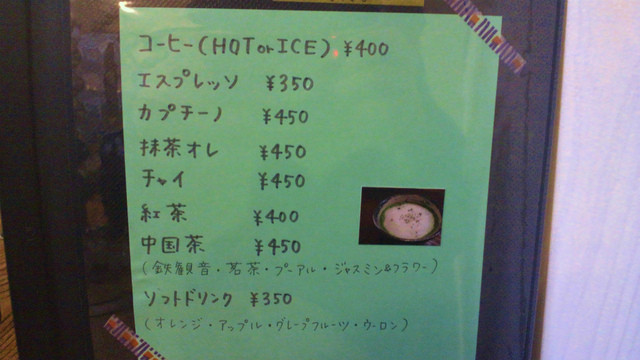 コーヒー(HOT or ICE) ¥400
エスプレッソ ¥350
カプチーノ ¥450
抹茶オレ ¥450
チャイ ¥450
紅茶 ¥400
中国茶 ¥450
(鉄観音・茗茶・プーアル・ジャスミン&フラワー)
ソフトドリンク ¥350
(オレンジ・アップル・グレープフルーツ・ウーロン)